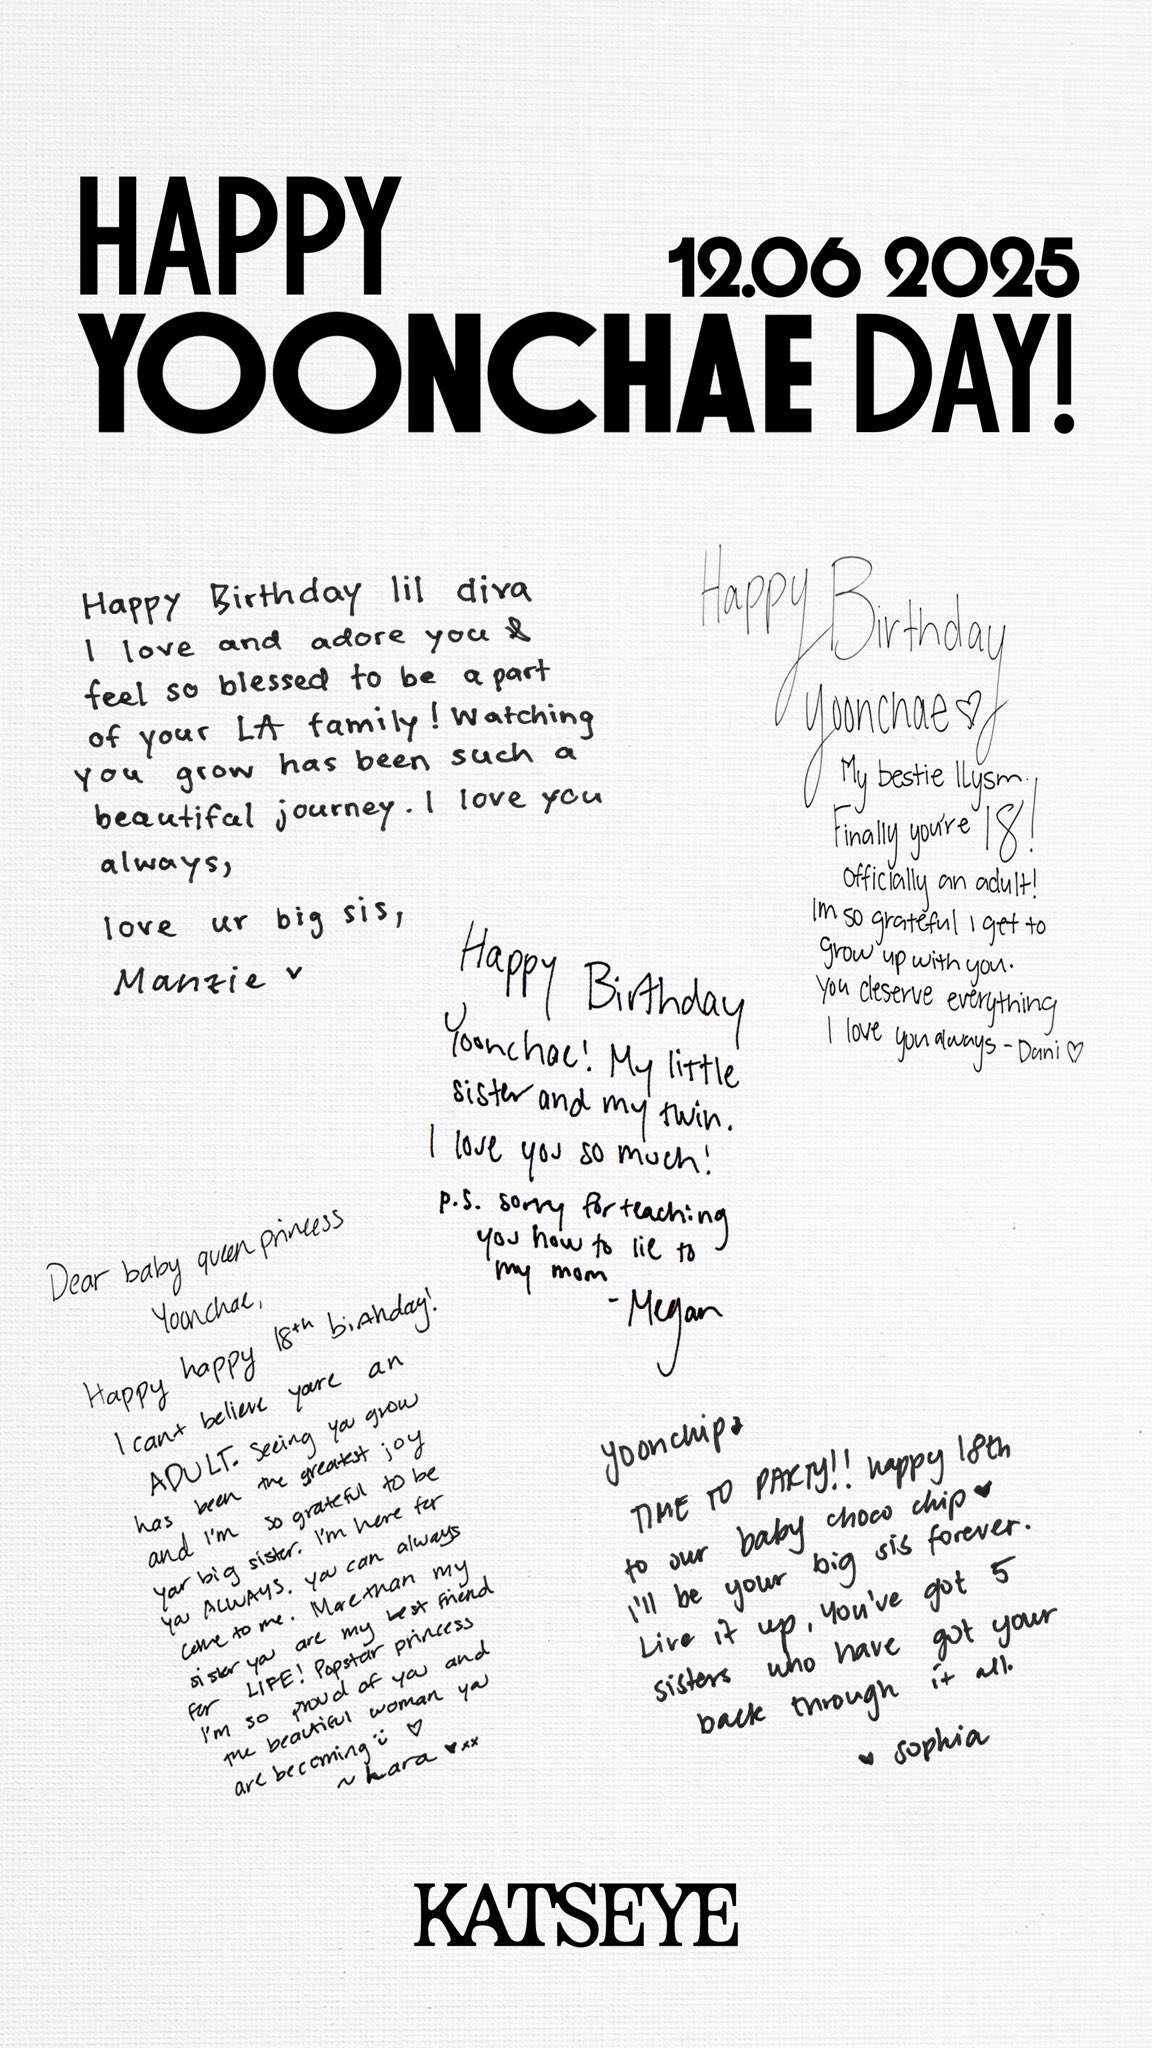 HAPPY
12.06 2025
YOONCHAE DAY!
Happy Birthday lil diva
I love and adore you &
feel so blessed to be a part
of your LA family! Watching
you grow has been such a
beautiful journey. I love you
always,
love ur big sis,
Manzie ♥
Happy Birthday
Yoonchae ♡
My bestie llysm.
Finally you're 18!
Officially an adult!
Im so grateful I get to
grow up with you.
You deserve everything
I love you always - Dani ♡
Happy Birthday
Yoonchae! My little
sister and my twin.
I love you so much!
p.s. sorry for teaching
you how to lie to
my mom
- Megan
Dear baby queen princess
Yoonchae,
Happy happy 18th birthday!
I can't believe you're an
ADULT. Seeing you grow
has been the greatest joy
and I'm so grateful to be
your big sister. I'm here for
you ALWAYS. You can always
come to me. More than my
sister you are my best friend
for LIFE! Popstar princess
I'm so proud of you and
the beautiful woman you
are becoming :) ♡
~ Lara ♥xx
yoonchip
TIME TO PARTY!! happy 18th
to our baby choco chip ♥
I'll be your big sis forever.
Live it up, You've got 5
sisters who have got your
back through it all.
♥ sophia
KATSEYE